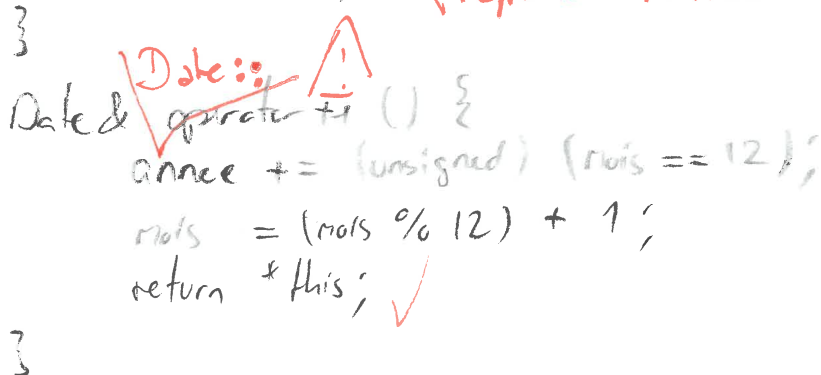 }
Date::
Date& operator ++ () {
annee += (unsigned) (mois == 12);
mois = (mois % 12) + 1;
return *this;
}